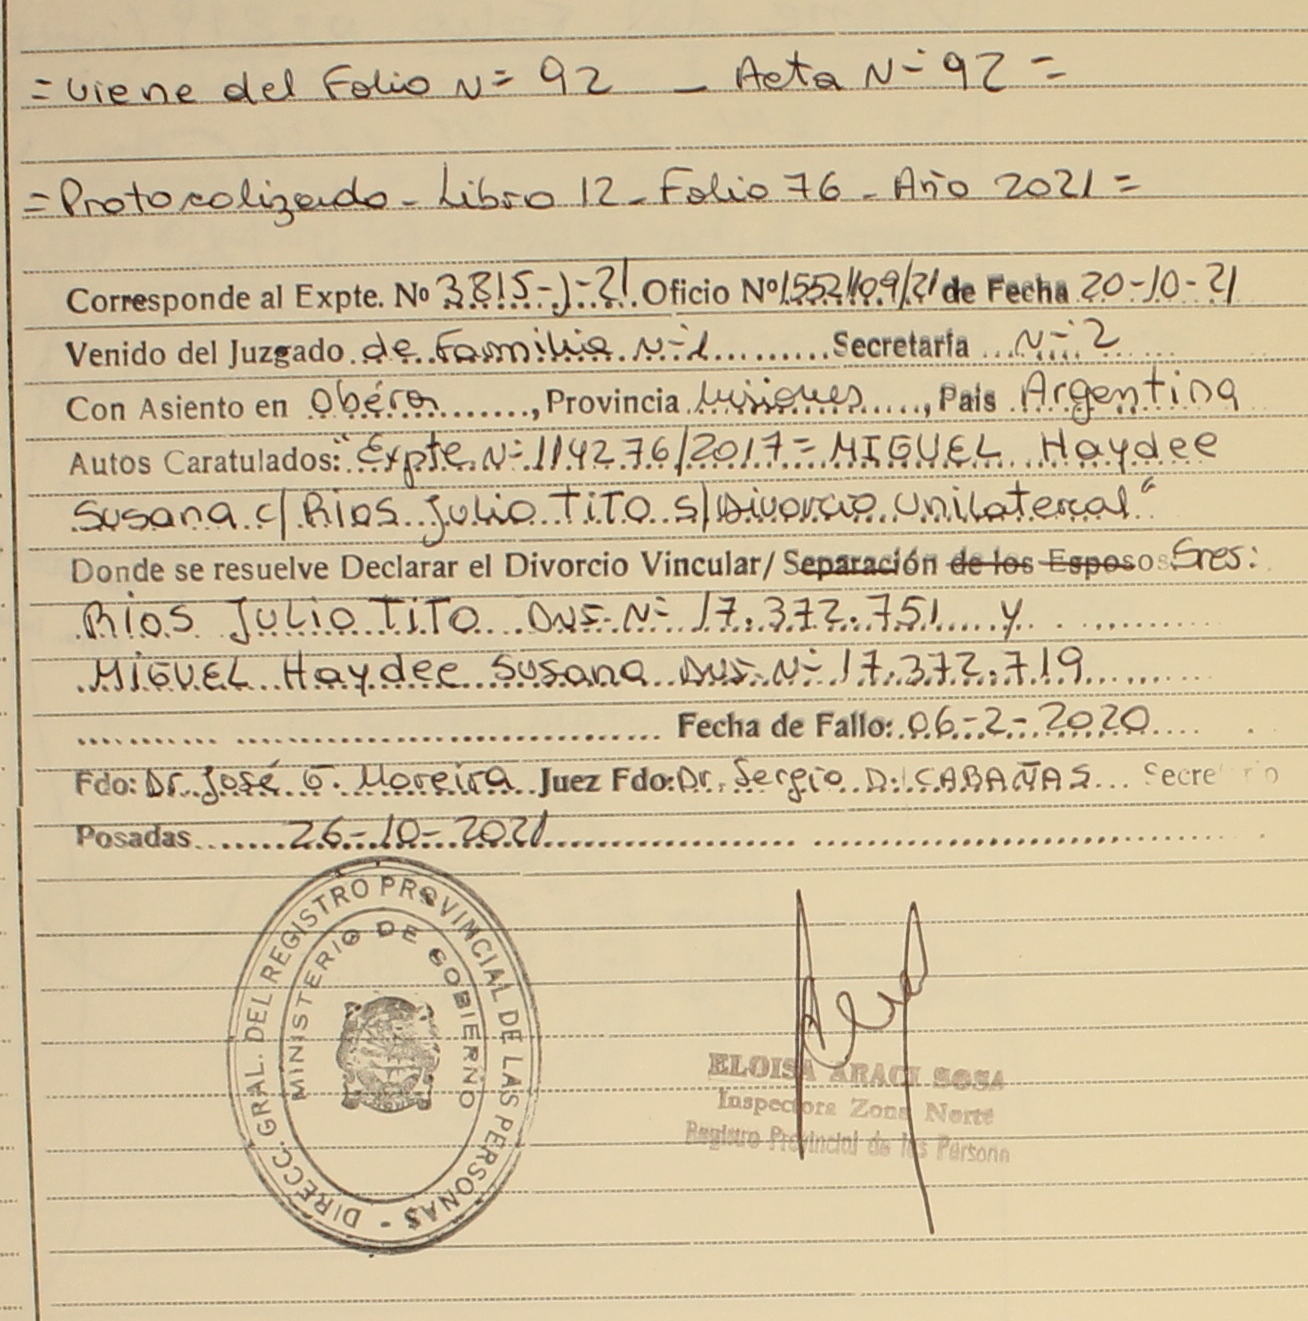 = Viene del Folio Nº 92 _ Acta Nº 92 =
= Protocolizado - Libro 12 - Folio 76 - Año 2021 =
Corresponde al Expte. Nº 3815-J-21 Oficio Nº 1552/09/21 de Fecha 20-10-21
Venido del Juzgado de Familia Nº 1 Secretaría Nº 2
Con Asiento en Oberá, Provincia Misiones, Pais Argentina
Autos Caratulados: "Expte. Nº 114276/2017 = MIGUEL Haydee
Susana c/ Rios Julio TiTO s/ Divorcio Unilateral"
Donde se resuelve Declarar el Divorcio Vincular/ Separación de los Esposos Sres:
RIOS JULIO TITO DNI. Nº 17.372.751 y
MIGUEL Haydee Susana DNI. Nº 17.372.719
Fecha de Fallo: 06-2-2020
Fdo: Dr. José G. Moreira Juez Fdo: Dr. Sergio D. CABAÑAS Secretario
Posadas 26-10-2021
DIRECC. GRAL. DEL REGISTRO PROVINCIAL DE LAS PERSONAS -
MINISTERIO DE GOBIERNO
ELOISA ARACI SOSA
Inspectora Zona Norte
Registro Provincial de las Persona